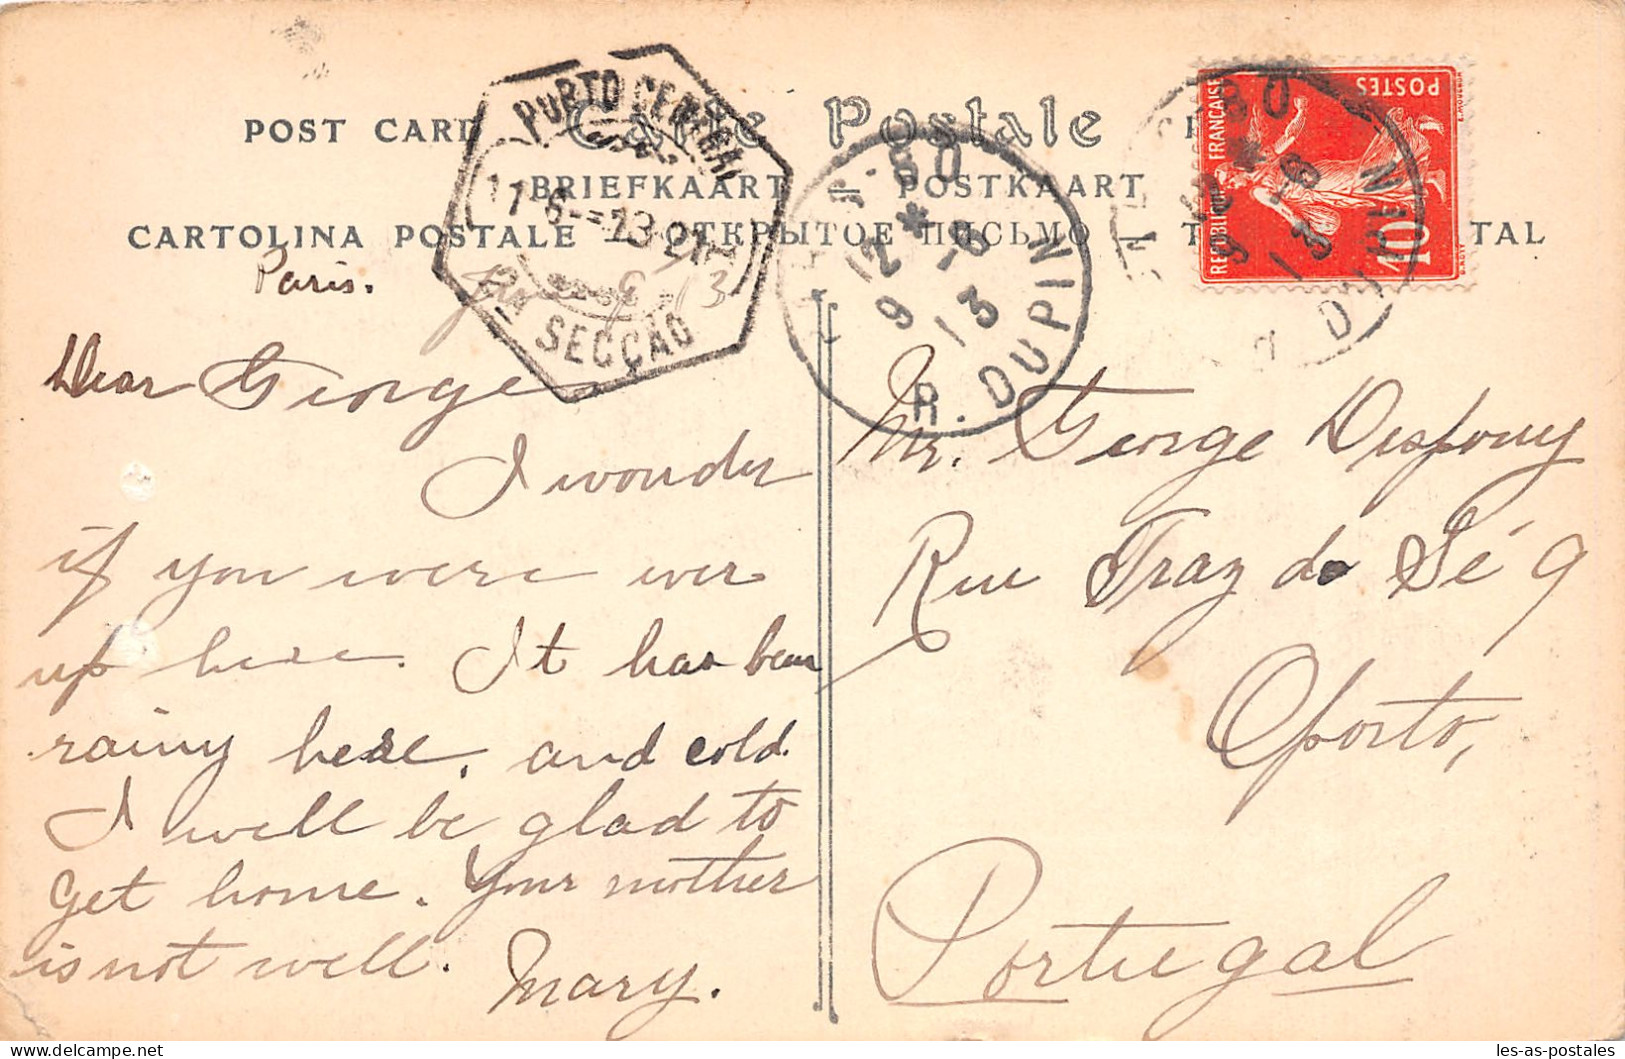 POST CARD
Carte Postale
BRIEFKAART = POSTKAART
CARTOLINA POSTALE — ОТКРЫТОЕ ПИСЬМО
TAL
PORTO CENTRAL
17-6-=13-21
SECÇÃO
50
12 *
9 -6
13
R. DUPIN
50
12 * -6
9 13
R. DUPIN
POSTES
REPUBLIQUE FRANÇAISE
10
Paris.
Dear George
I wonder
if you were ever
up here. It has been
rainy here, and cold.
I will be glad to
get home. Your mother
is not well.
Mary.
Mr. George Despouy
Rue Traz da Sé 9
Oporto,
Portugal
les-as-postales